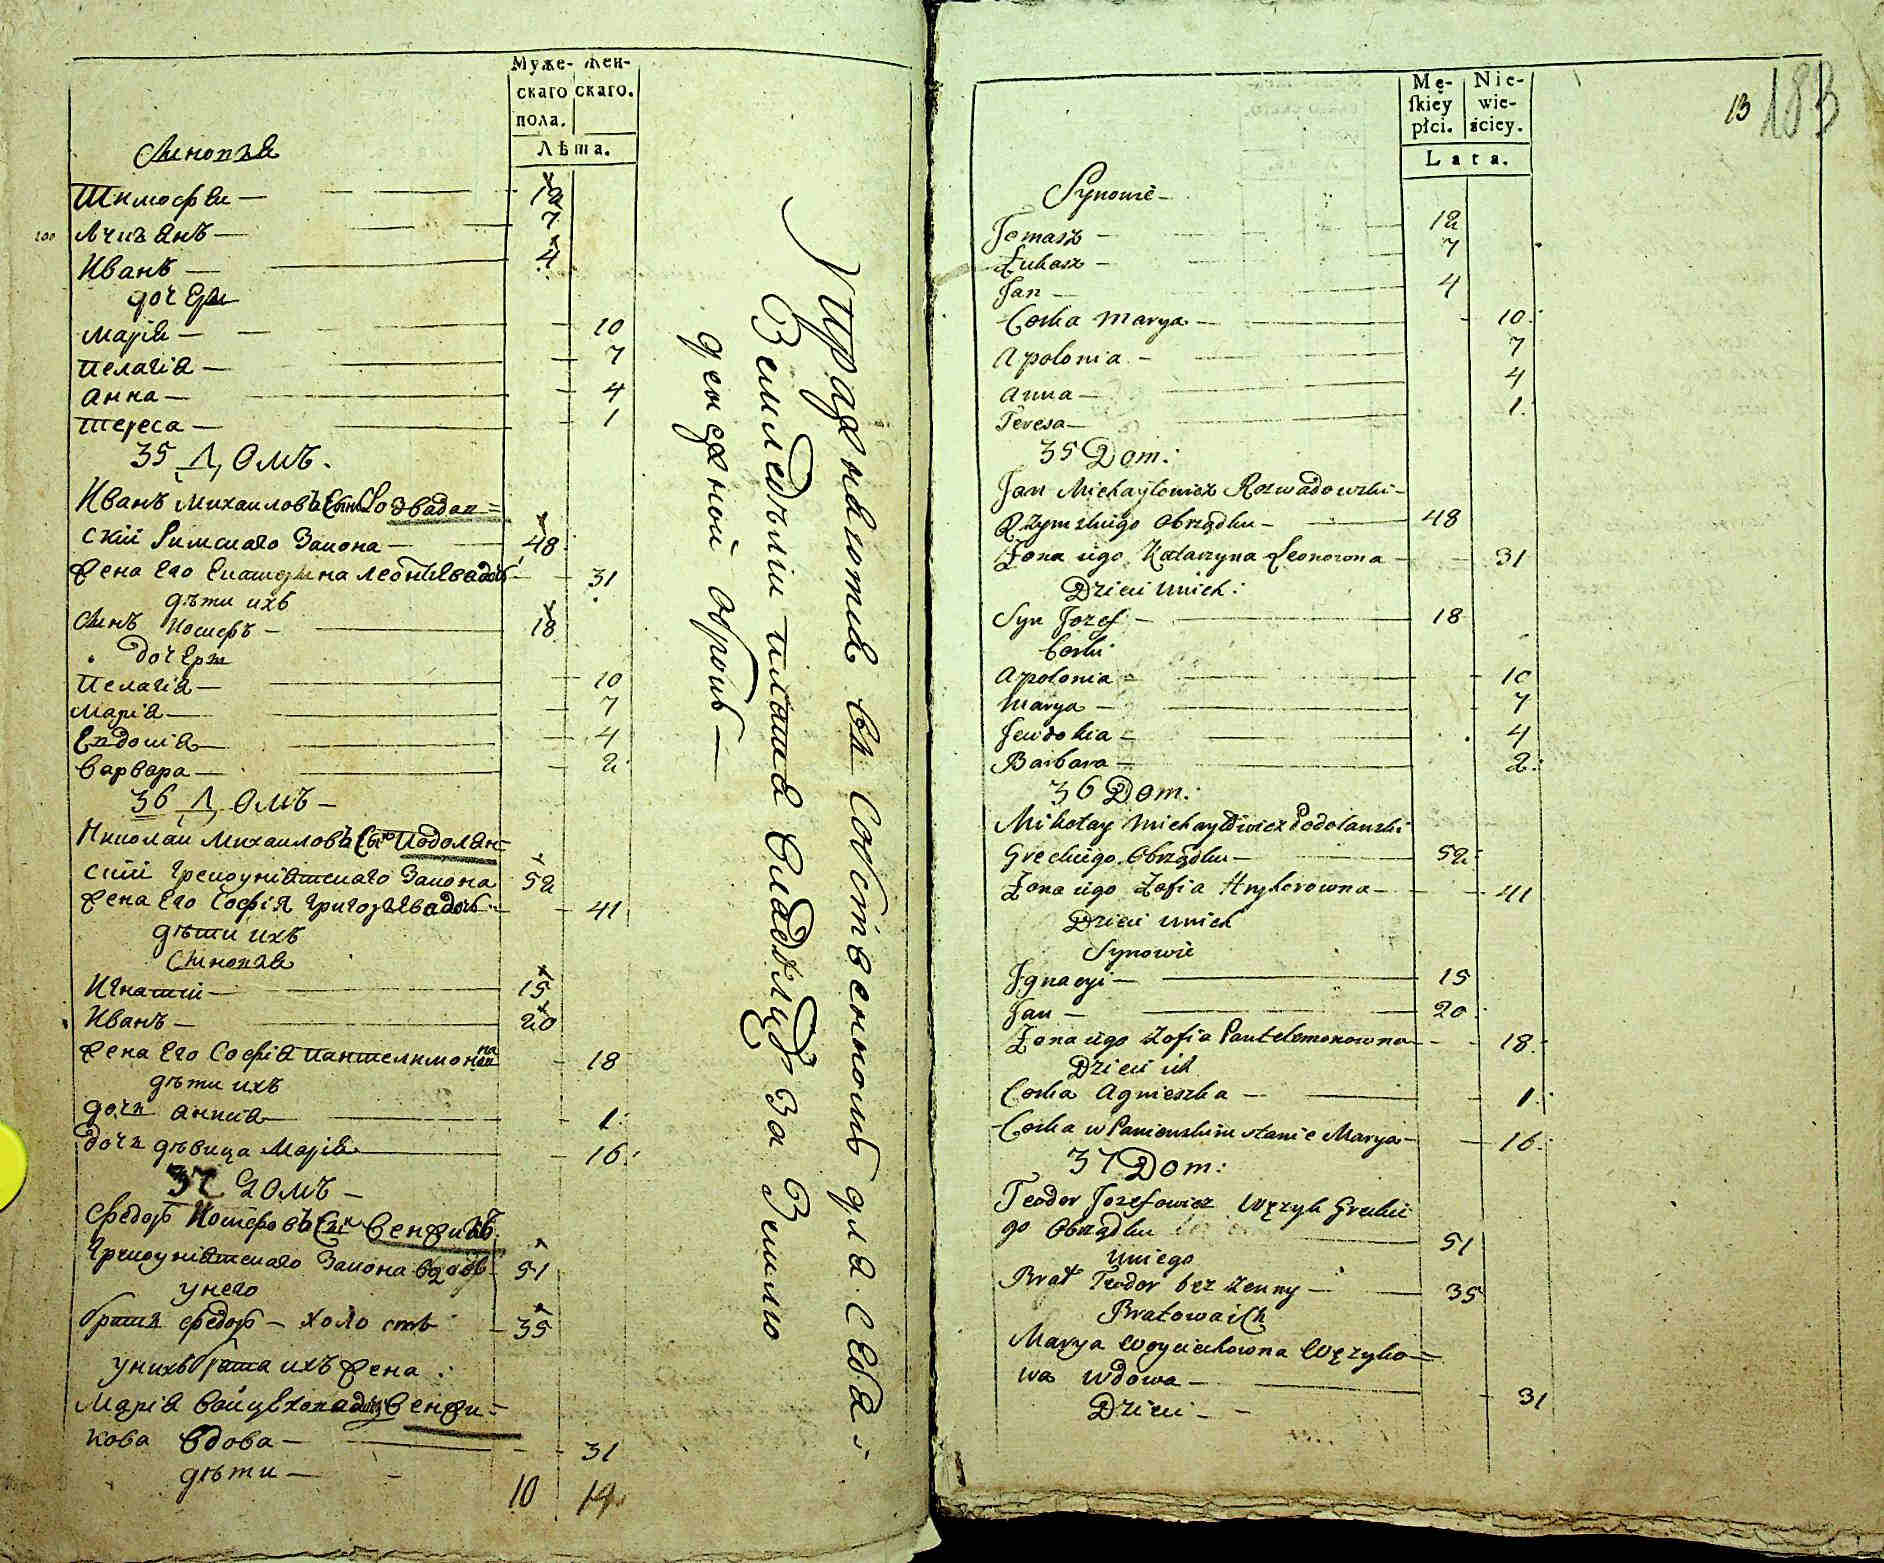 Муже- Жен-
скаго скаго.
пола.
Лѣта.
Сыновья
Тимофей — 12
Лукянъ — 7
Иванъ — 4
дочери
Марія — 10
Пелагія — 7
Анна — 4
Тереса — 1
35 Домъ.
Иванъ Михаиловъ Сынъ Розвадов=
скій Римскаго Закона — 48
Жена Его Екатерина Леонтьева дочь — 31
дѣти ихъ
Сынъ Иосифъ — 18
дочери
Пелагія — 10
Марія — 7
Евдокія — 4
Варвара — 2
36 Домъ —
Николай Михаиловъ Сынъ Подолян=
скій Грекоуніятскаго Закона 52
Жена Его Софія Григорьева дочь — 41
дѣти ихъ
Сыновья
Игнатій — 15
Иванъ — 20
Жена Его Софія Пантелимоновна 18
дѣти ихъ
дочь Анна — 1
дочь дѣвица Марія — 16
37 Домъ —
Федоръ Иосифовъ Сынъ Венжикъ
Грекоуніятскаго Закона вдовъ 51
у него
братъ Федоръ — холостъ 35
у нихъ брата ихъ Жена
Марія Войцехова дочь Венжи=
кова вдова — 31
дѣти —
10 14
Упражняются въ Собственномъ для Себя
Земледѣліи платя Владѣльцу За Землю
денежной оброкъ —
13 183
Mę- Nie-
skiey wie-
płci. ściey.
Lata.
Synowie —
Tomasz — 12
Łukasz — 7
Jan — 4
Corka Marya — 10
Apolonia — 7
Anna — 4
Teresa — 1
35 Dom:
Jan Michayłowicz Rozwadowski —
Rzymskiego Obrządku — 48
Żona iego Katarzyna Leonowna — 31
Dzieci u nich:
Syn Jozef — 18
Corki
Apolonia — 10
Marya — 7
Jewdokia — 4
Barbara — 2
36 Dom:
Mikołay Michayłowicz Podolanski
Greckiego Obrządku — 52
Żona iego Zofia Hryhorowna — 41
Dzieci u nich
Synowie
Jgnacyi — 15
Jan — 20
Żona iego Zofia Pantelemonowna — 18
Dzieci ich
Corka Agnieszka — 1
Corka w Panienskim stanie Marya — 16
37 Dom:
Teodor Jozefowicz Wężyk Grecki
go Obrządku — 51
U niego
Brat Teodor bez żenny — 35
Bratowa ich
Marya Woyciechowna Wężyko=
wa wdowa — 31
Dzieci —